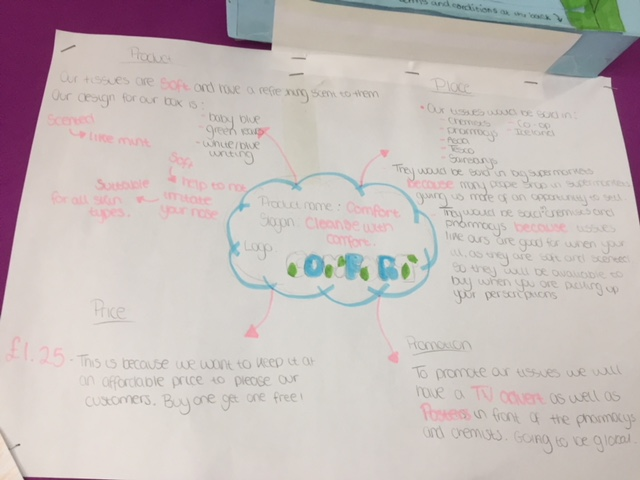 terms and conditions on the back
Product
Our tissues are soft and have a refreshing scent to them
Our design for our box is:
- baby blue
- green leaves
- white/blue
writing
Scented
like mint
Soft
help to not
irritate
your nose
Suitable
for all skin
types.
Place
• Our tissues would be found in:
- Chemists - Co-op
- pharmacys - Iceland
- Asda
- Tesco
- Sainsburys
They would be sold in big supermarkets
because many people shop in supermarkets
giving us more of an opportunity to sell.
- They would be sold chemists and
pharmacys because tissues
like ours are good for when your
ill, as they are soft and scented
so they will be available to
buy when you are picking up
your perscriptions
Product name: Comfort
Slogan: Cleanse with
comfort.
Logo:
Price
£1.25 - This is because we want to keep it at
an affordable price to please our
customers. Buy one get one free!
Promotion
To promote our tissues we will
have a TV advert as well as
Posters in front of the pharmacys
and chemists. Going to be global.